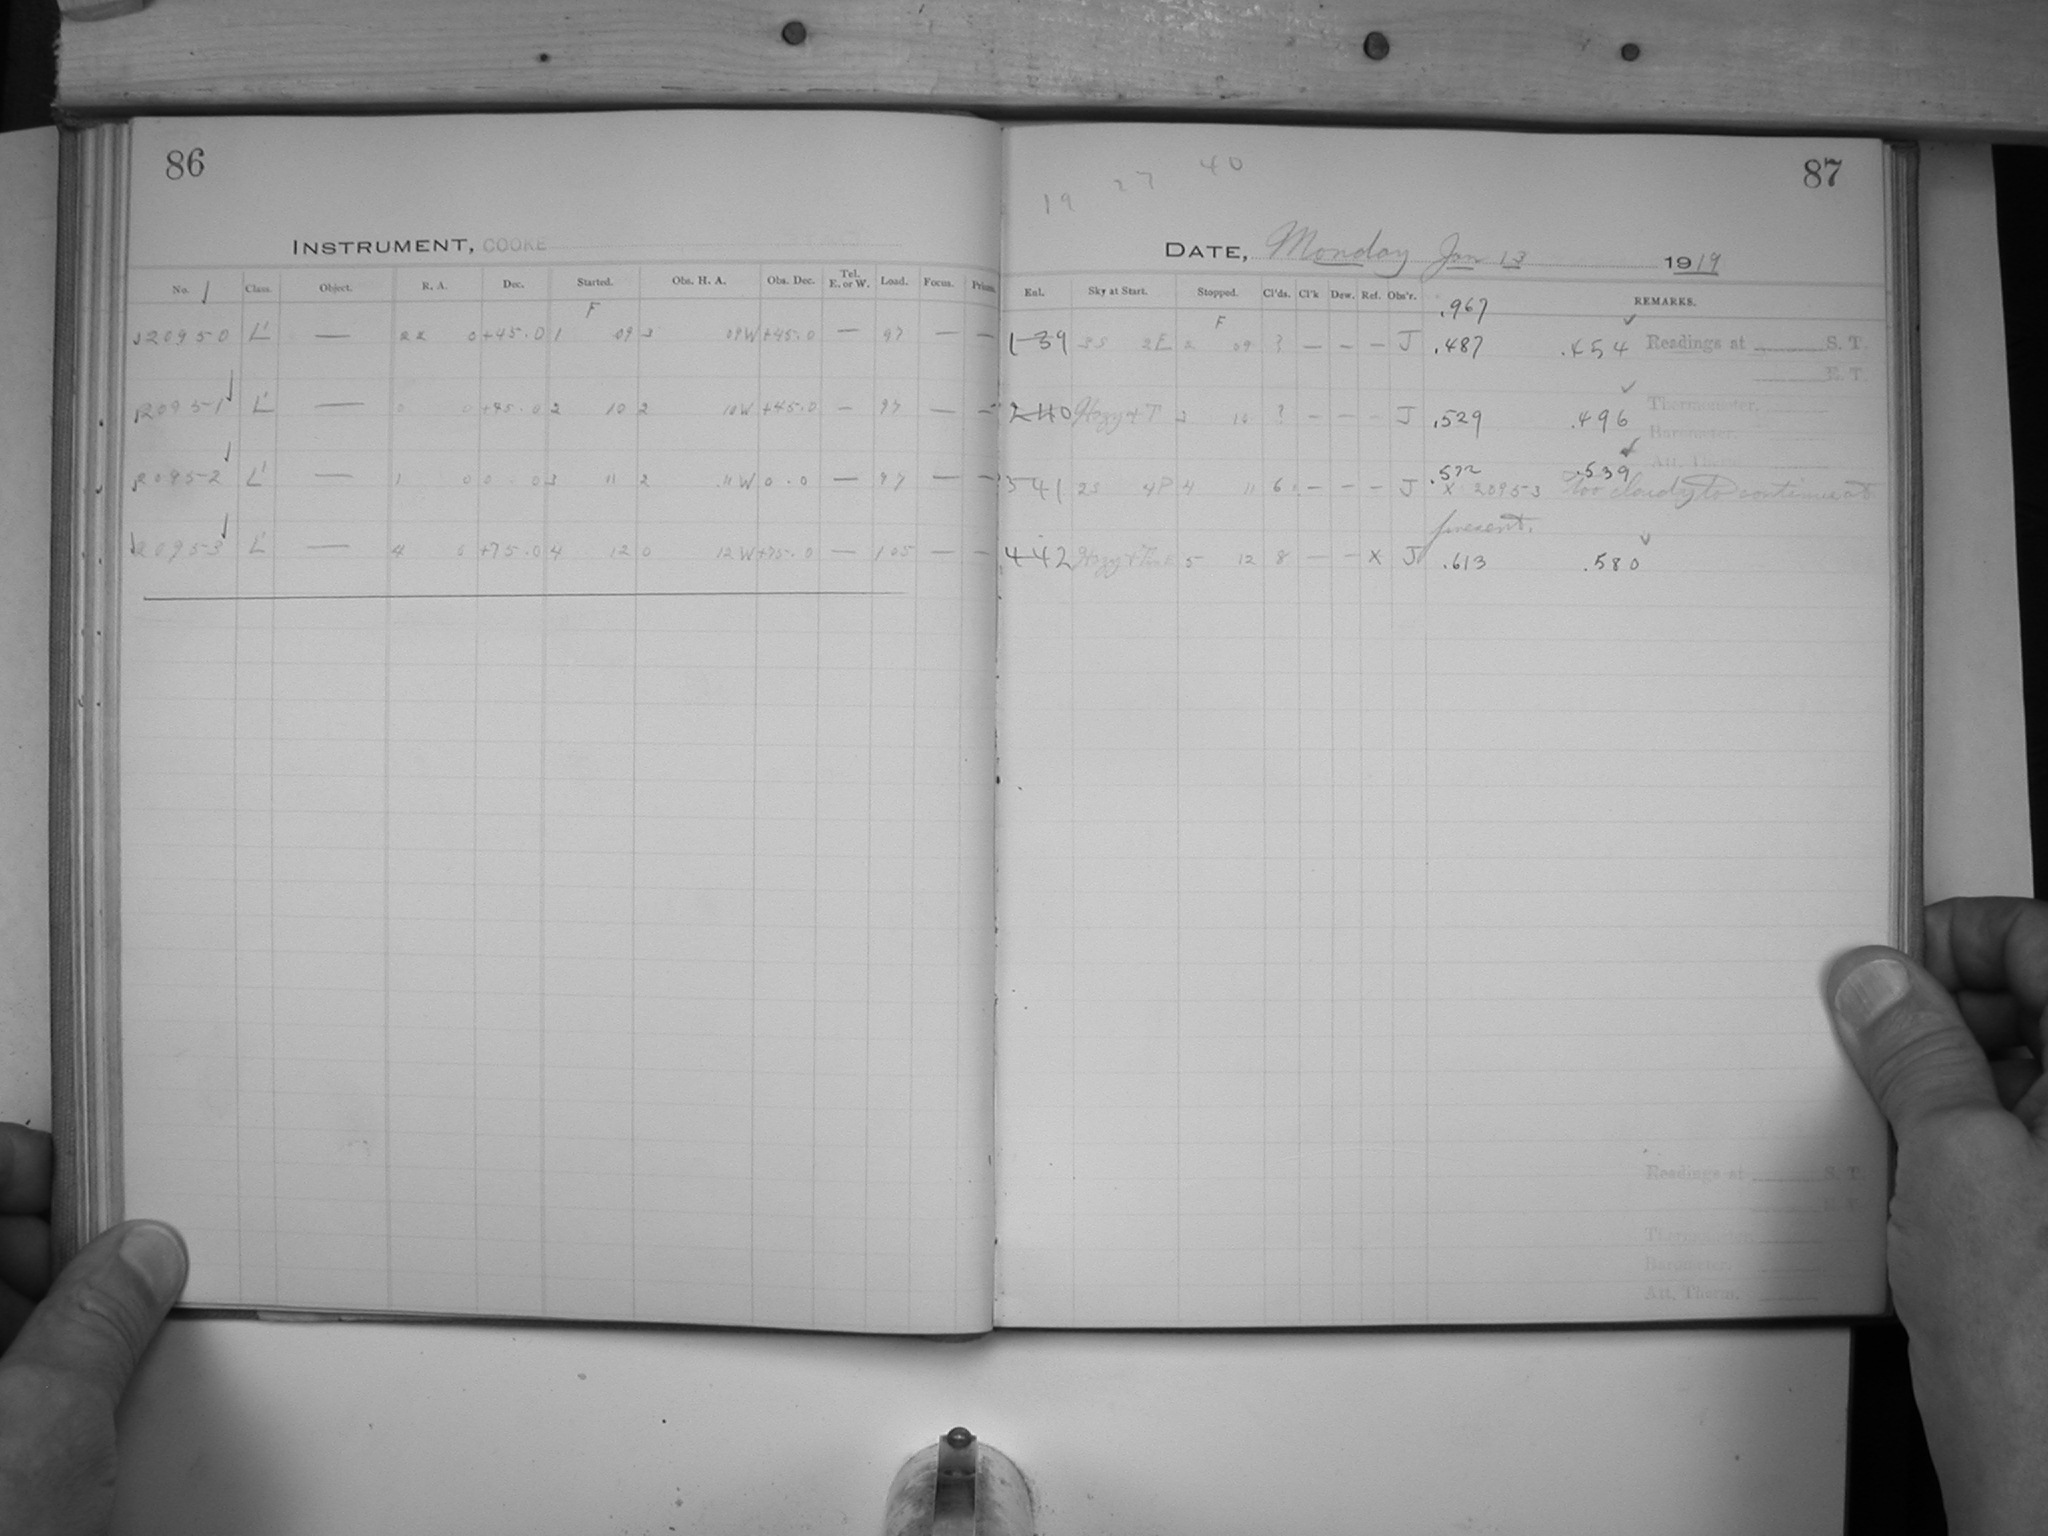 86
INSTRUMENT, COOKE
No. Class. Object. R. A. Dec. Started. Obs. H. A. Obs. Dec. Tel. E. or W. Load. Focus. Prism.
F
20950 L' — 22 0 +45.0 1 09 3 09W +45.0 — 97 — —
20951 L' — 0 0 +45.0 2 10 2 10W +45.0 — 97 — —
20952 L' — 1 0 0 0 3 11 2 11W 0.0 — 97 — —
20953 L' — 4 0 +75.0 4 12 0 12W +75.0 — 105 — —
19 27 40
87
DATE, Monday Jan 13 1919
Eul. Sky at Start. Stopped. Cl'ds. Cl'k Dew. Ref. Obs'r. REMARKS.
.967
F
1 39 3S 2E 2 09 ? — — — J .487 .454 Readings at S. T.
E. T.
2 40 Hazy + T 3 10 ? — — — J .529 .496 Thermometer.
Barometer.
Att. Therm.
.572 .539
3 41 2S 4P 4 11 6 — — — J x 20953 too cloudy to continue at
present.
4 42 Hazy + 5 12 8 — — x J .613 .580
Readings at S. T.
E. T.
Thermometer.
Barometer.
Att. Therm.